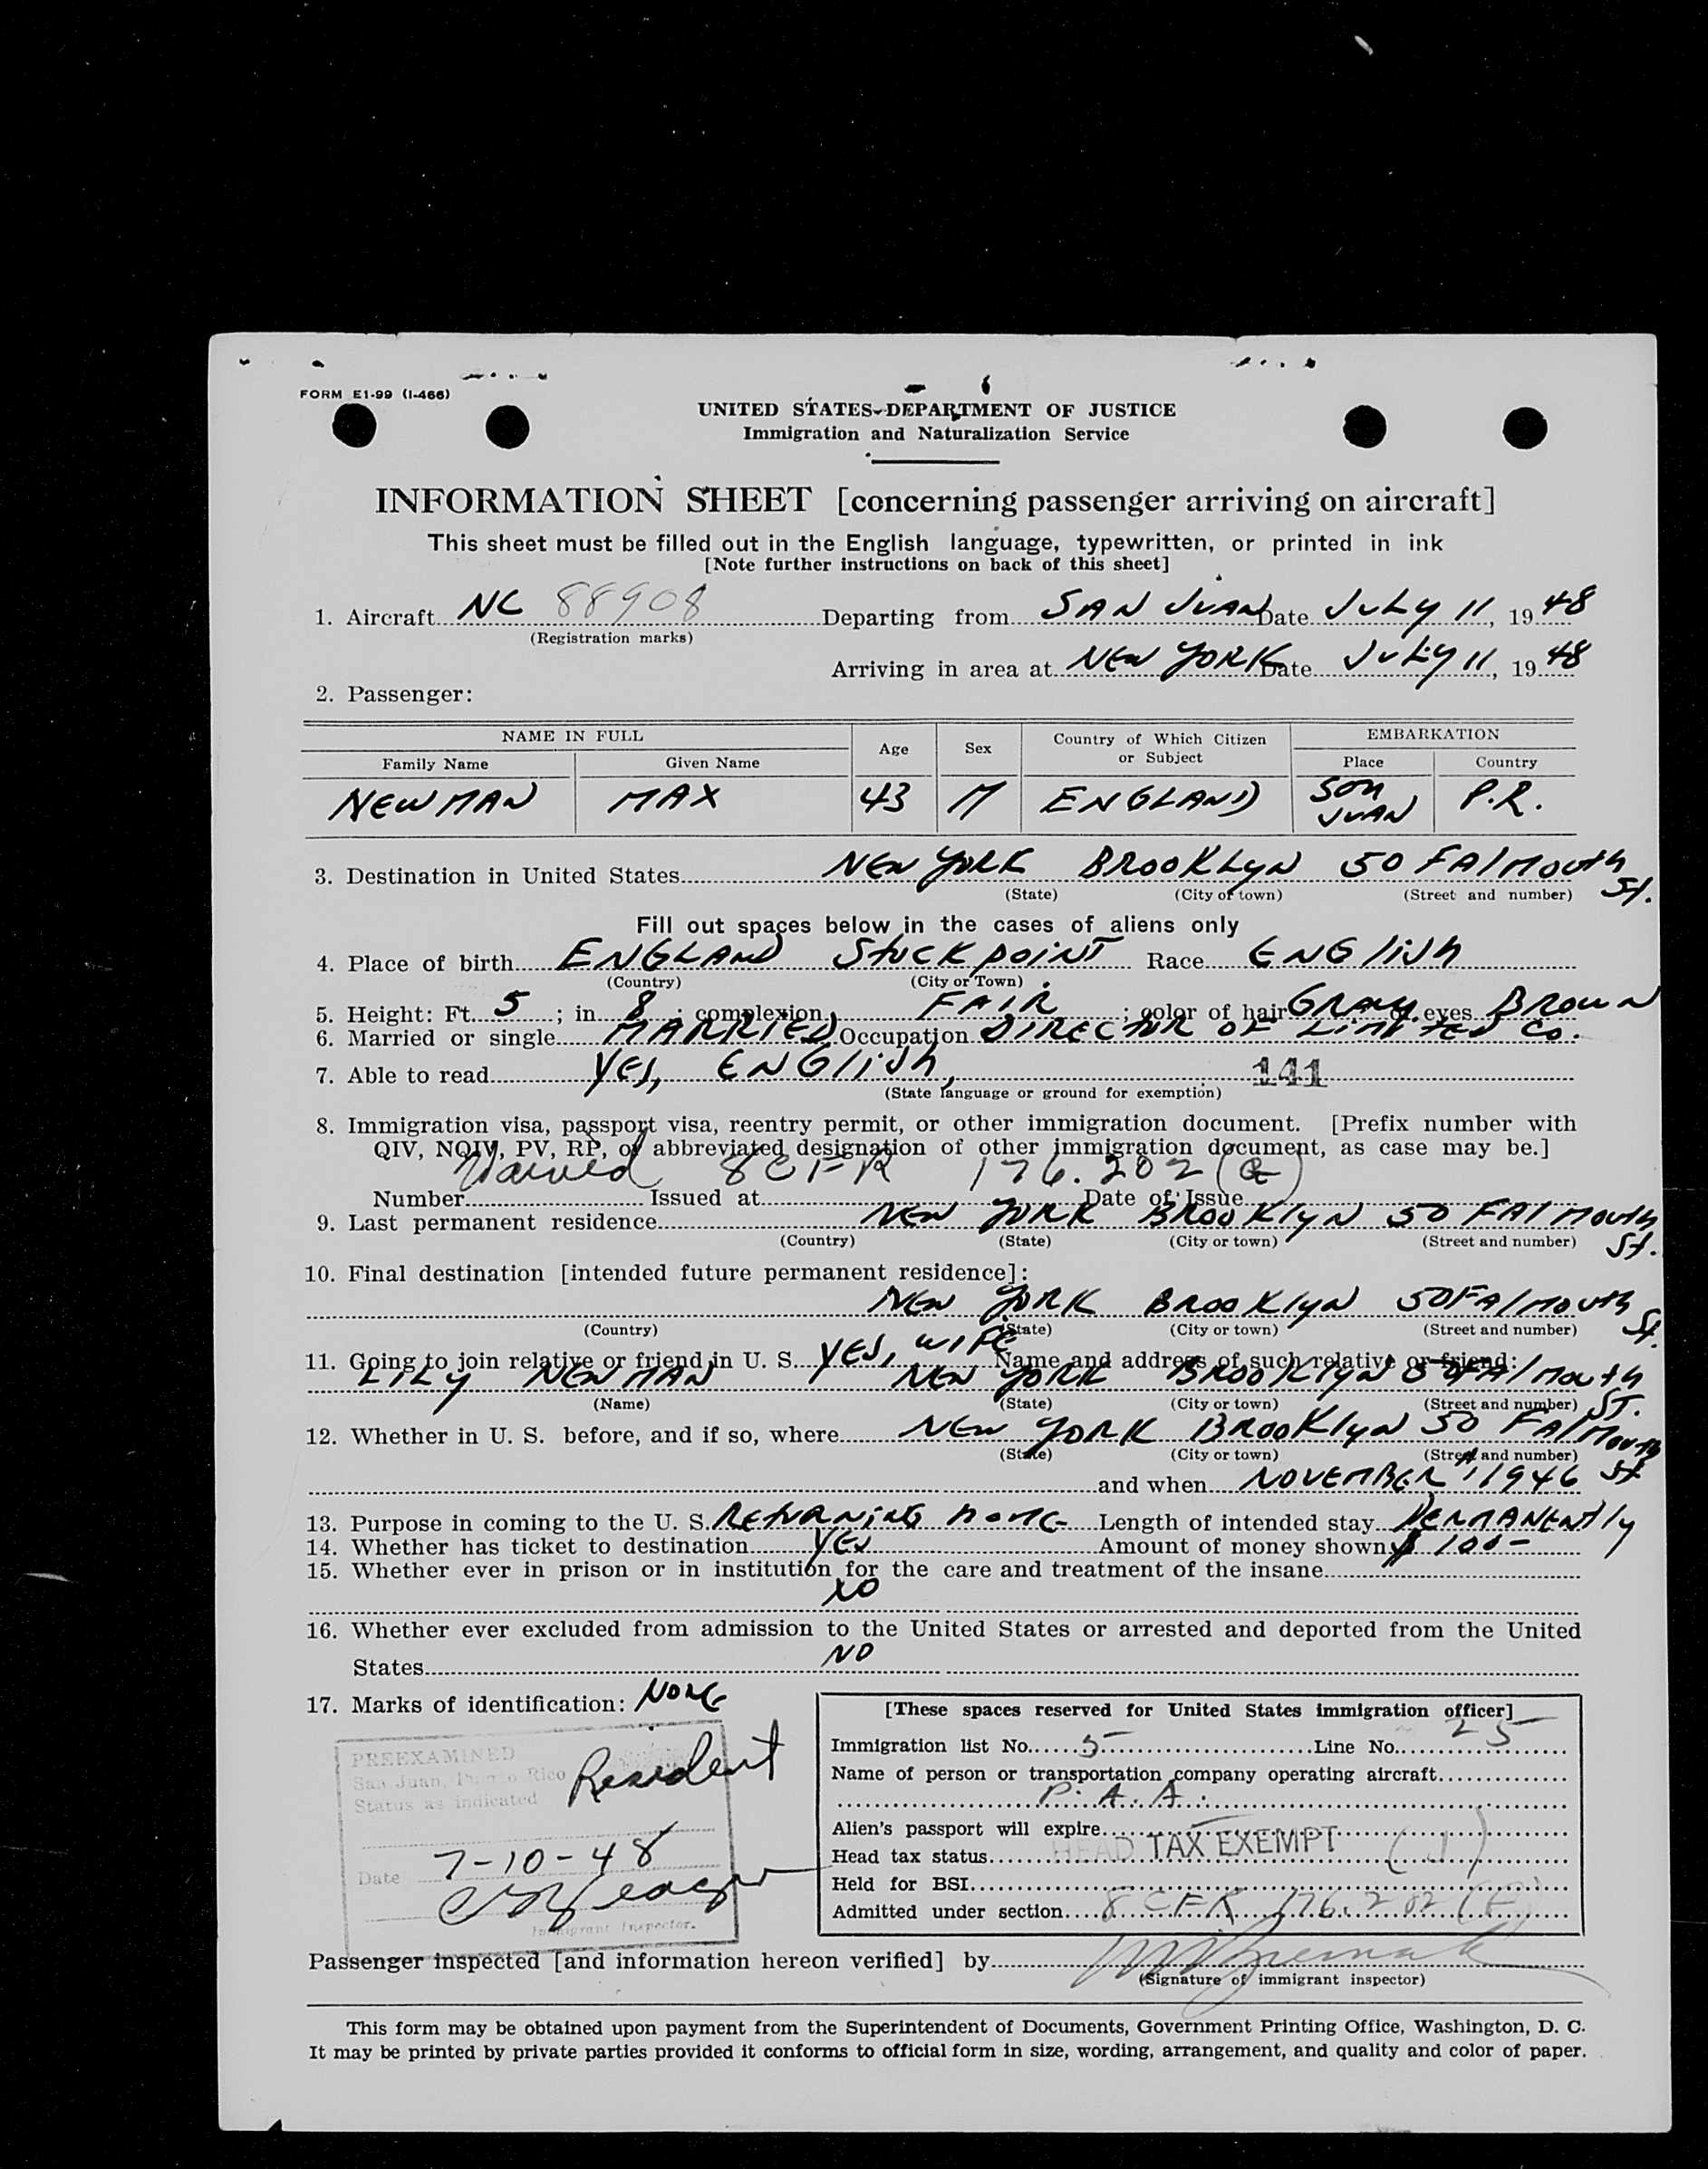 FORM E1-99 (I-466)
UNITED STATES DEPARTMENT OF JUSTICE
Immigration and Naturalization Service
INFORMATION SHEET [concerning passenger arriving on aircraft]
This sheet must be filled out in the English language, typewritten, or printed in ink
[Note further instructions on back of this sheet]
1. Aircraft NC 88908 Departing from SAN JUAN Date JULY 11, 1948
(Registration marks)
Arriving in area at NEW YORK Date JULY 11, 1948
2. Passenger:
NAME IN FULL Age Sex Country of Which Citizen or Subject EMBARKATION
Family Name Given Name Place Country
NEWMAN MAX 43 M ENGLAND SAN JUAN P.R.
3. Destination in United States NEW YORK BROOKLYN 50 FALMOUTH St.
(State) (City or town) (Street and number)
Fill out spaces below in the cases of aliens only
4. Place of birth ENGLAND STOCKPOINT Race ENGLISH
(Country) (City or Town)
5. Height: Ft. 5; in. 8; complexion FAIR; color of hair GRAY; eyes BROWN
6. Married or single MARRIED Occupation DIRECTOR OF LIMITED CO.
7. Able to read YES, ENGLISH, 141
(State language or ground for exemption)
8. Immigration visa, passport visa, reentry permit, or other immigration document. [Prefix number with
QIV, NQIV, PV, RP, or abbreviated designation of other immigration document, as case may be.]
Waived 8 CFR 176.202
Number Issued at Date of Issue
9. Last permanent residence NEW YORK BROOKLYN 50 FALMOUTH St.
(Country) (State) (City or town) (Street and number)
10. Final destination [intended future permanent residence]:
NEW YORK BROOKLYN 50 FALMOUTH St.
(Country) (State) (City or town) (Street and number)
11. Going to join relative or friend in U. S. YES, WIFE Name and address of such relative or friend:
LILY NEWMAN NEW YORK BROOKLYN 50 FALMOUTH ST.
(Name) (State) (City or town) (Street and number)
12. Whether in U. S. before, and if so, where NEW YORK BROOKLYN 50 FALMOUTH St
(State) (City or town) (Street and number)
and when NOVEMBER, 1946
13. Purpose in coming to the U. S. RETURNING HOME Length of intended stay PERMANENTLY
14. Whether has ticket to destination YES Amount of money shown $ 100-
15. Whether ever in prison or in institution for the care and treatment of the insane
NO
16. Whether ever excluded from admission to the United States or arrested and deported from the United
States NO
17. Marks of identification: NONE
PREEXAMINED
San Juan, Puerto Rico
Status as indicated
Resident
Date 7-10-48
Immigrant Inspector.
[These spaces reserved for United States immigration officer]
Immigration list No. 5 Line No. 25
Name of person or transportation company operating aircraft
P. A. A.
Alien's passport will expire
Head tax status HEAD TAX EXEMPT (1)
Held for BSI
Admitted under section 8 CFR 176.202
Passenger inspected [and information hereon verified] by
(Signature of immigrant inspector)
This form may be obtained upon payment from the Superintendent of Documents, Government Printing Office, Washington, D. C.
It may be printed by private parties provided it conforms to official form in size, wording, arrangement, and quality and color of paper.